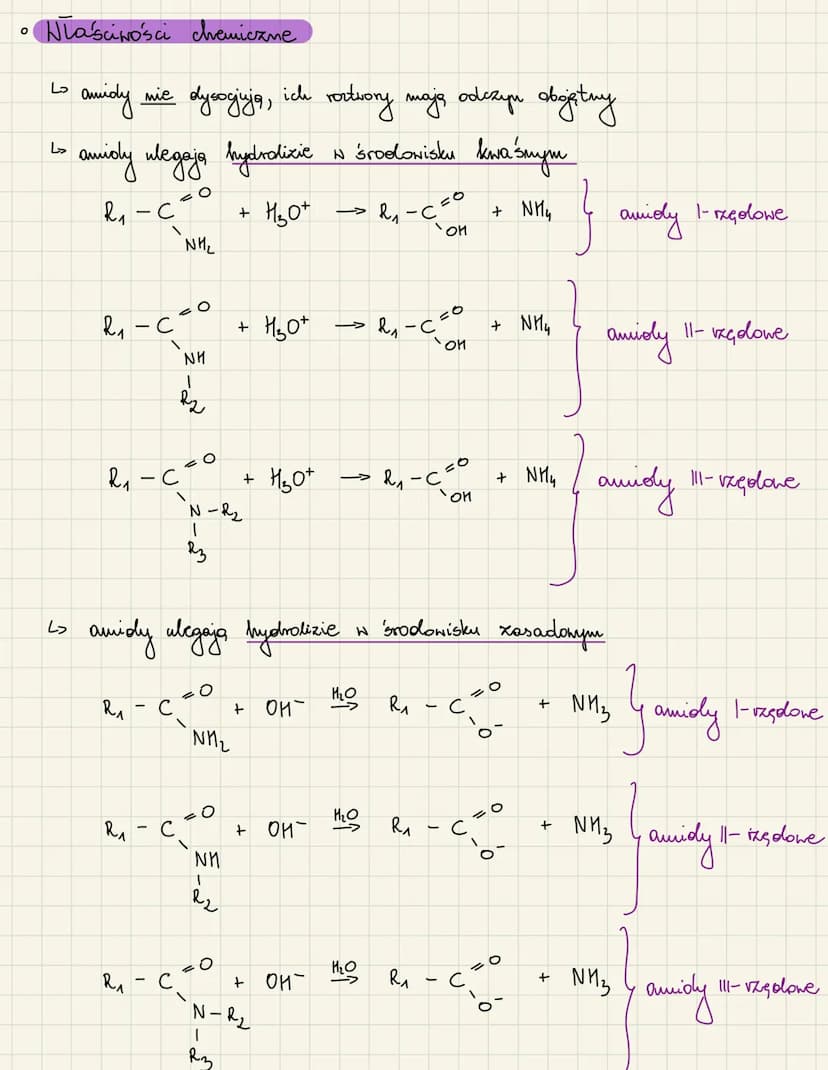 Właściwości chemiczne
↳ amidy nie dysocjują, ich roztwory mają odczyn obojętny
↳ amidy ulegają hydrolizie w środowisku kwaśnym
R₁ – C =O \ NH₂ + H₃O⁺ → R₁ – C =O \ OH + NH₄ } amidy I-rzędowe
R₁ – C =O \ NH | R₂ + H₃O⁺ → R₁ – C =O \ OH + NH₄ } amidy II-rzędowe
R₁ – C =O \ N – R₂ | R₃ + H₃O⁺ → R₁ – C =O \ OH + NH₄ } amidy III-rzędowe
↳ amidy ulegają hydrolizie w środowisku zasadowym
R₁ – C =O \ NH₂ + OH⁻ H₂O → R₁ – C =O \ O⁻ + NH₃ } amidy I-rzędowe
R₁ – C =O \ NH | R₂ + OH⁻ H₂O → R₁ – C =O \ O⁻ + NH₃ } amidy II-rzędowe
R₁ – C =O \ N – R₂ | R₃ + OH⁻ H₂O → R₁ – C =O \ O⁻ + NH₃ } amidy III-rzędowe